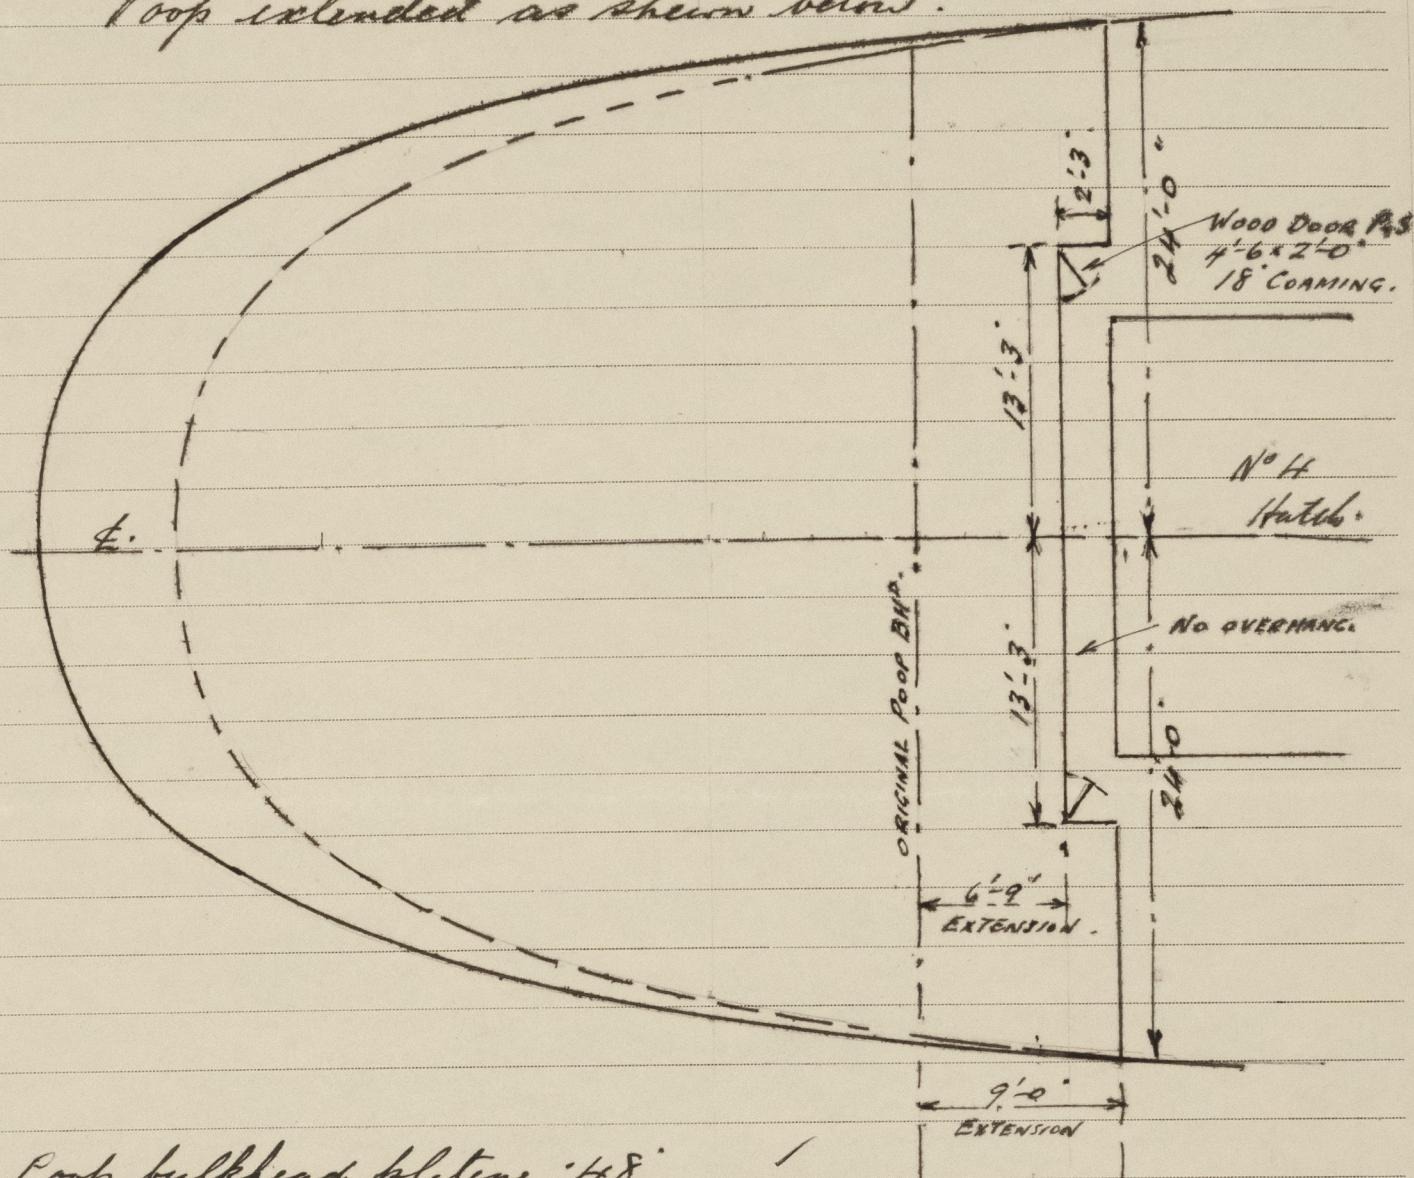 Poop extended as shewn below.
2'-3"
24'-0"
WOOD DOOR P&S
4'-6 x 2'-0"
18" COAMING.
13'-3"
No 4
Hatch.
℄.
ORIGINAL POOP BHD.
NO OVERHANG.
13'-3"
24'-0"
6'-9"
EXTENSION.
9'-0"
EXTENSION
Poop bulkhead plating .48"